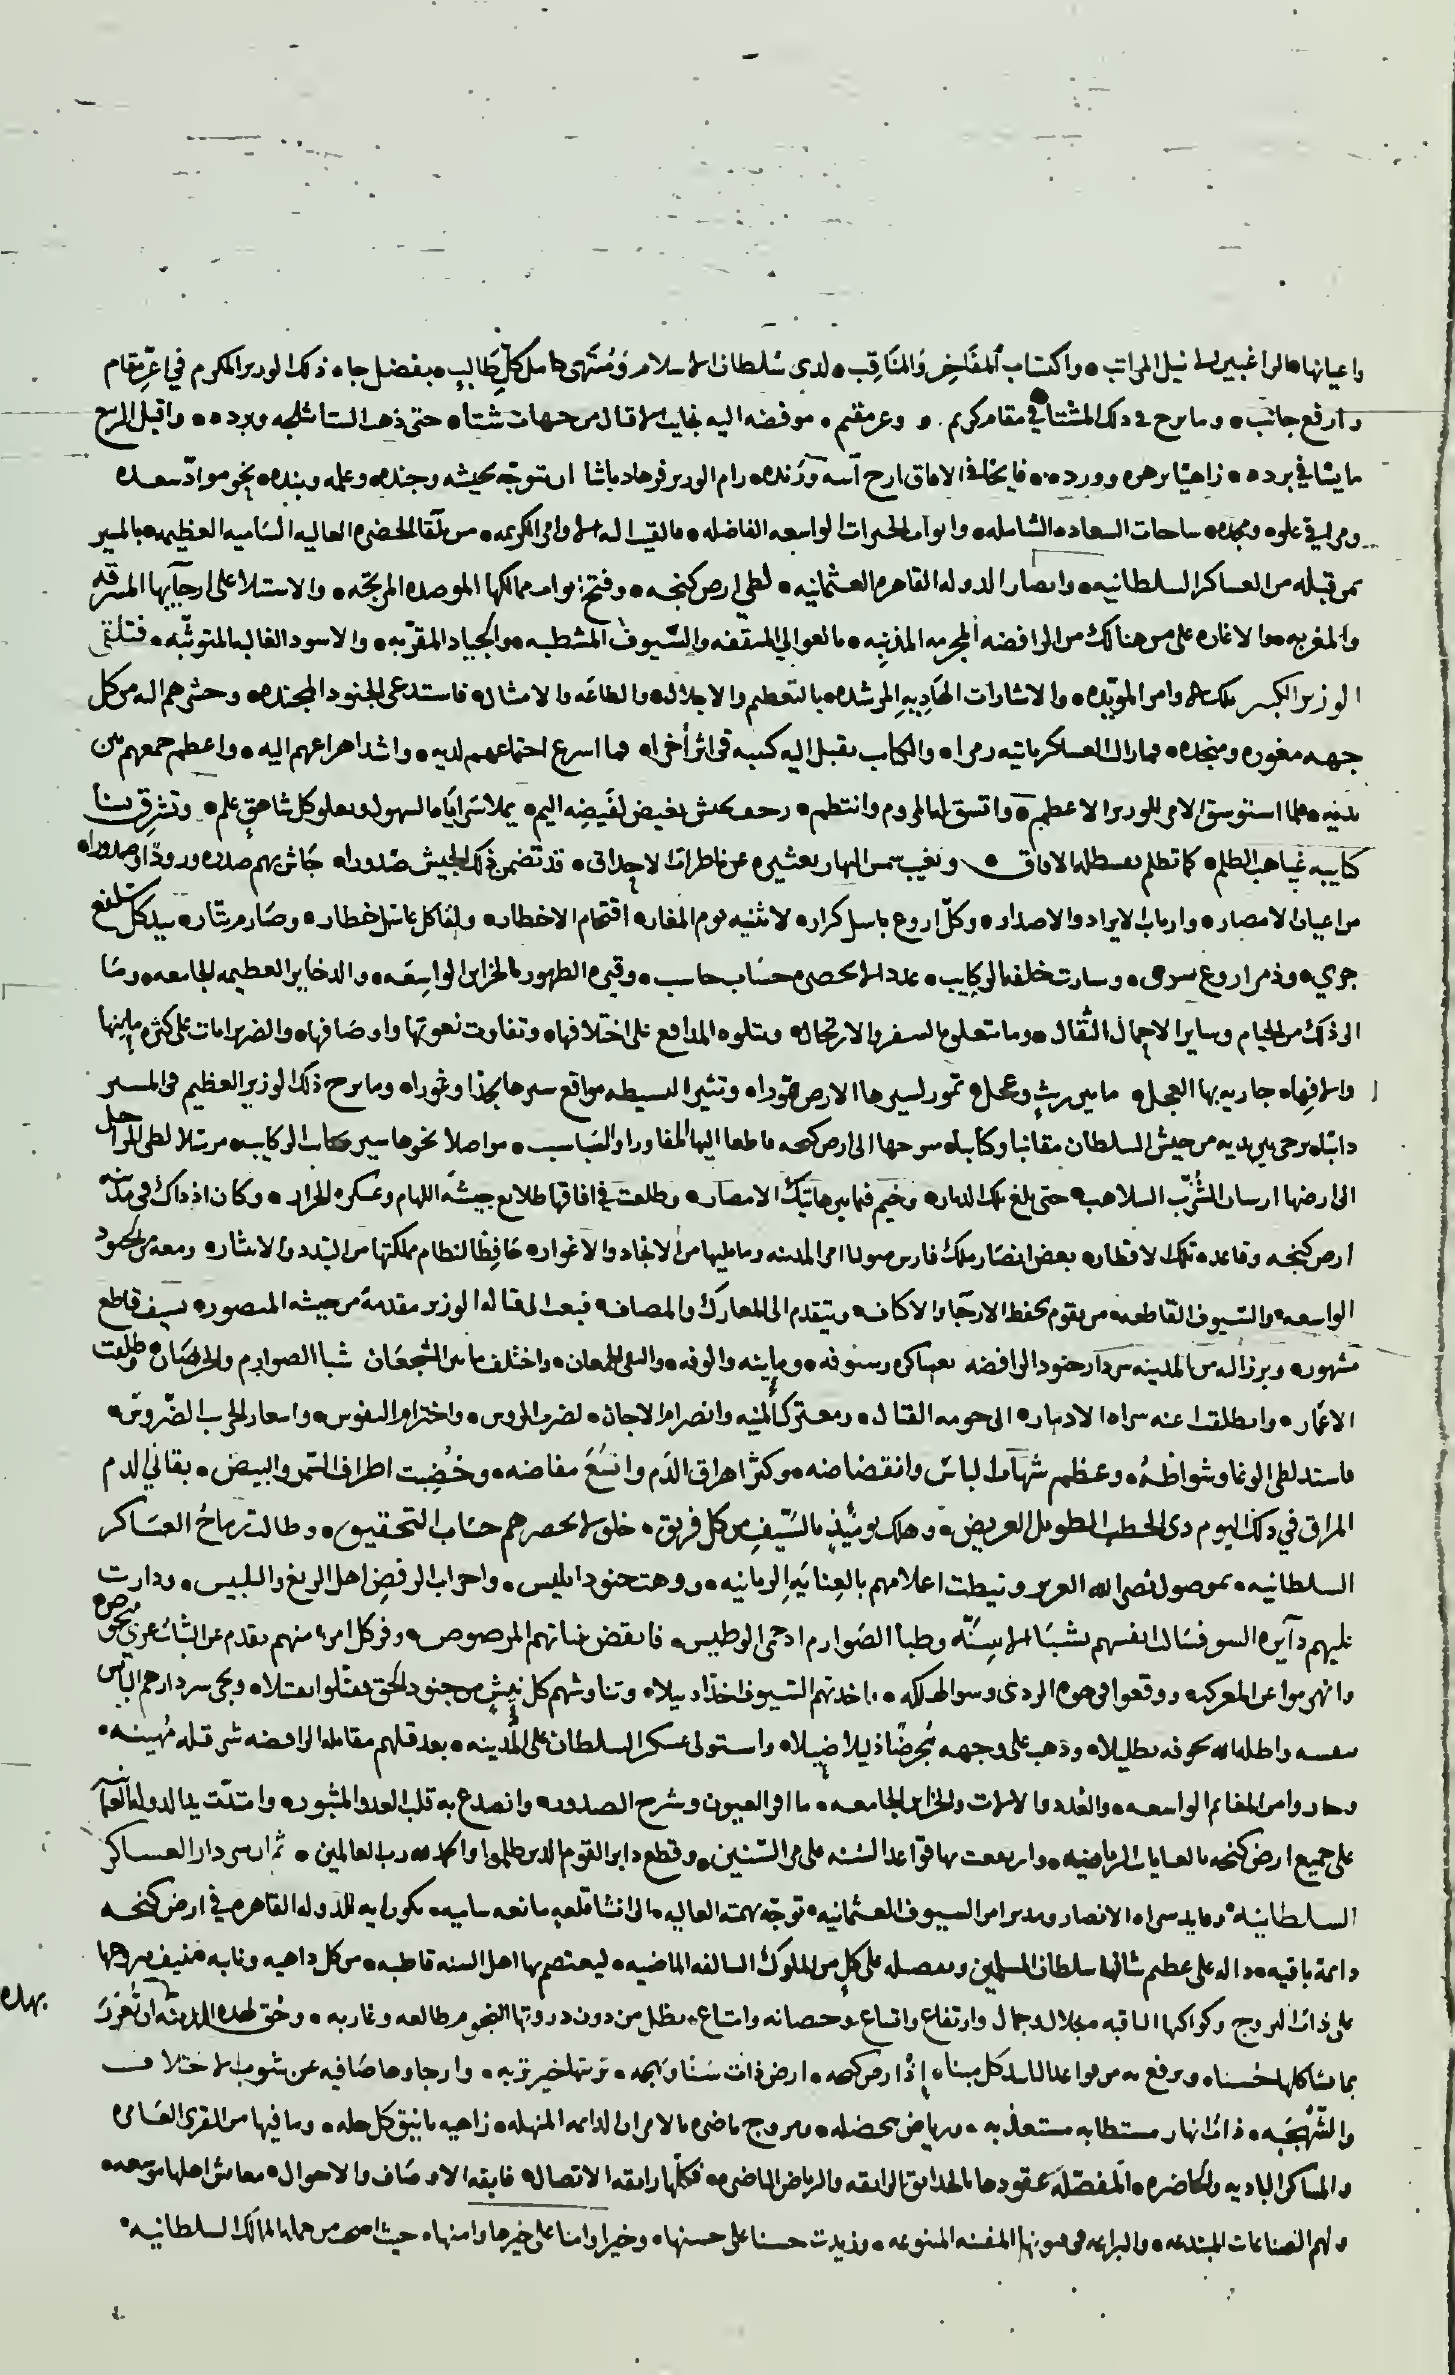 واعيانها الراغبين الى نيل المراتب واكتساب المفاخر والمناقب لدى سلطان الاسلام ومنتهى كامل كل طالب بفضل جاه ذلك الوزير المكرم في اعز مقام
وارفع جانب وما برح في ذلك المشتا في مقام كريم وعز مقيم الاقبال من جهات شتا حتى ذهب الشتا بثلجه وبرده واقبل الربيع
زاهيا بزهره وورده رام الوزير فرهاد باشا ان يتوجه بجيشه وجنده وعلمه وبنده نحو مواد سعده
ساحات السعاده الشامله وابواب الخيرات الواسعه الفاضله الاوامر الكريمه من تلقا الحضره العاليه الساميه العظيمه بالمسير
بمن قبله من العساكر السلطانيه وانصار الدوله القاهره العثمانيه لطي ارض كنجه وفتح ابواب ممالكها الموصده المرتجه والاستيلا على ارجآيها المشرقه
والمغربه والاغاره على من هنالك من الرافضه المجرمه المذنبه بالعوالي المثقفه والسيوف المشطبه والجياد المقربه والاسود الغالبه المتوثبه فتلقى
الوزير الكبير تلك الاوامر المويده والاشارات الهاديه المرشده بالتعظيم والاجلال والطاعه والامتثال فاستدعى الجنود المجنده وحشرهم اليه من كل
جهه مغوره ومنجده فما زال العساكر ياتيه زمرا والكتاب تقبل اليه كتيبه في اثر اخرى فما اسرع اجتماعهم لديه واشد اهراعهم اليه واعظم جمعهم بين
يديه فلما استوسق الامر للوزير الاعظم واتسق له المروم وانتظم زحف بجيش يغيض لفيضه اليم يملا سراياه السهول ويعلو كل شاهق علم وتشرق بسنا
كتايبه غياهب الظلم كما تظلم الافاق وتغيب شمس النهار بعثيره عن ناظرات الاحداق قد تضمن ذلك الجيش صدورا جاش بهم صدره ورودا وصدورا
من اعيان الامصار وارباب الايراد والاصدار وكل اروع باسل كرار لا يثنيه يوم المغار اقتحام الاخطار ولقا كل عاسل خطار وصارم بتار بيد كل
جري وذمر اروع سري وسارت خلفه الركايب بعدد لا يحصى حساب حاسب وقيره الظهور بالخزاين الواسعه والذخاير العظيمه الجامعه وما
الى ذلك من الخيام وساير الاحمال الثقال وما تعلق بالسفر والارتحال ويتلوه المدافع على اختلافها وتفاوت نعوتها واوصافها والضربزانات على كثره مايينها
والافها جاريه بها العجل ما بين ريث وعجل تمور لسيرها الارض مورا وتثير البسيطه مواقع سيرها نجدا وغورا وما برح ذلك الوزير العظيم في المسير
دايبا يزجي بين يديه من جيش السلطان مقانبا وكتايبا الى ارض كنجه قاطعا اليها المفاوز والسباسب مواصلا نحوها سير الركايب مرتلا لطي المراحل
الى ارضها ارسال الشزب السلاهب حتى بلغ تلك الديار وخيم فيما بين هاتيك الامصار وطلعت في افاقها طلايع جيشه اللهام وعسكره الجرار وكان اذ ذاك في مدينه
ارض كنجه وقاعده تلك الاقطار بعض انصار ملك فارس متوليا امر المدينه وما يليها من الانجاد والاغوار حافظا لنظام مملكتها من التبدد والانتثار ومعه من الجنود
الواسعه والسيوف القاطعه من يقوم بحفظ الارجا والاكناف ويتقدم الى المعارك والمصاف فبعث لقتاله الوزير مقدمة من جيشه المنصور بسيف قاطع
مشهور وبرز اليه من المدينه سردار جنود الرافضه بعساكره وسيوفه وماينه والوفه والتقى الجمعان واختلف ما بين الشجعان شبا الصوارم والخرصان وطلعت
الاغمار وانطلقت اعنه الادبار الى حومه القتال ومعترك المنيه وانصرام الاجال لضرب الروس واخترام النفوس واسعار الحرب الضروس
فاستد لظى الوغا وشواظه وعظم شهاب الباس وانقضاضه وكثر اهراق الدم واتسع مفاضه وخضبت اطراف السمر والبيض بقاني الدم
المراق في ذلك اليوم ذي الخطب الطويل العريض وهلك يومئذ بالسيف من كل فريق خلق لا يحصرهم حساب التحقيق وطالت رماح العساكر
السلطانيه بموصول نصر الله العزيز ونيطت اعلامهم بالعنايه الربانيه ووهت جنود ابليس واحزاب الرفض اهل الزيغ والتلبيس ودارت
عليهم دآيره السو فسالت انفسهم بشبا الاسنه وظبا الصوارم اذ حمي الوطيس فانقض بنيانهم المرصوص وفر كل امرء منهم
وانهزموا عن المعركه ووقعوا في هوه الردى وسوا الهلكه فاخذتهم السيوف اخذا وبيلا وتناوشهم كل بئيس من جنود الحق فقتلوا تقتيلا ونجى سردارهم
بنفسه وذهب على وجهه ذليلا ضيلا واستولى عسكر السلطان على المدينه بعد قتلهم مقاتله الرافضه شر قتله مهينه
وحازوا من المغانم الواسعه والعدد والالات والخزاين الجامعه ما اقر العيون وشرح الصدور وانصدع به قلب العدو المثبور وامتدت يد الدوله
على جميع ارض كنجه بالعنايات الربانيه وارتفعت بها قواعد السنه على مر السنين وقطع دابر القوم الذين ظلموا والحمد لله رب العالمين ثم ان سردار العساكر
السلطانيه توجه بهمته العاليه الى انشا قلعه مانعه ساميه تكون ايه للدوله القاهره في ارض كنجه
دايمة باقيه داله على عظيم شان سلطان المسلمين وفضله على كل من الملوك السالفه الماضيه ليعتصم بها اهل السنه قاطبه من كل داهيه ونايبه
على ذات البروج وكواكبها الثاقبه بجلال وجمال وارتفاع واتساع وحصانه وامتناع يظل من دون ذروتها النجم مطالعه وغاربه وحق لهذه المدينه ان تعزز
بما شاكلها حسنا كل مبنا اذ ارض كنجه ارض ذات سنا وبهجه تربتها خير تربه وارجاوها صافيه عن شوب الاختلاف
ذات انهار مستطابه مستعذبه ورياض مخضله ومروج ناضره زاهيه بانيق كل حله وما فيها من القرى العامره
والمساكن الباديه والحاضره المفصله عقودها بالحدايق الرايقه والرياض الناضره فكلها رايقه الاتصال فايقه الاوصاف والاحوال معاش اهلها موسعه
ولهم الصناعات المبتدعه والبراعه في فنونها المفننه المنوعه وزيدت حسنا على حسنها وخيرا وامنا على خيرها وامنها حيث اضحت من جمله الممالك السلطانيه